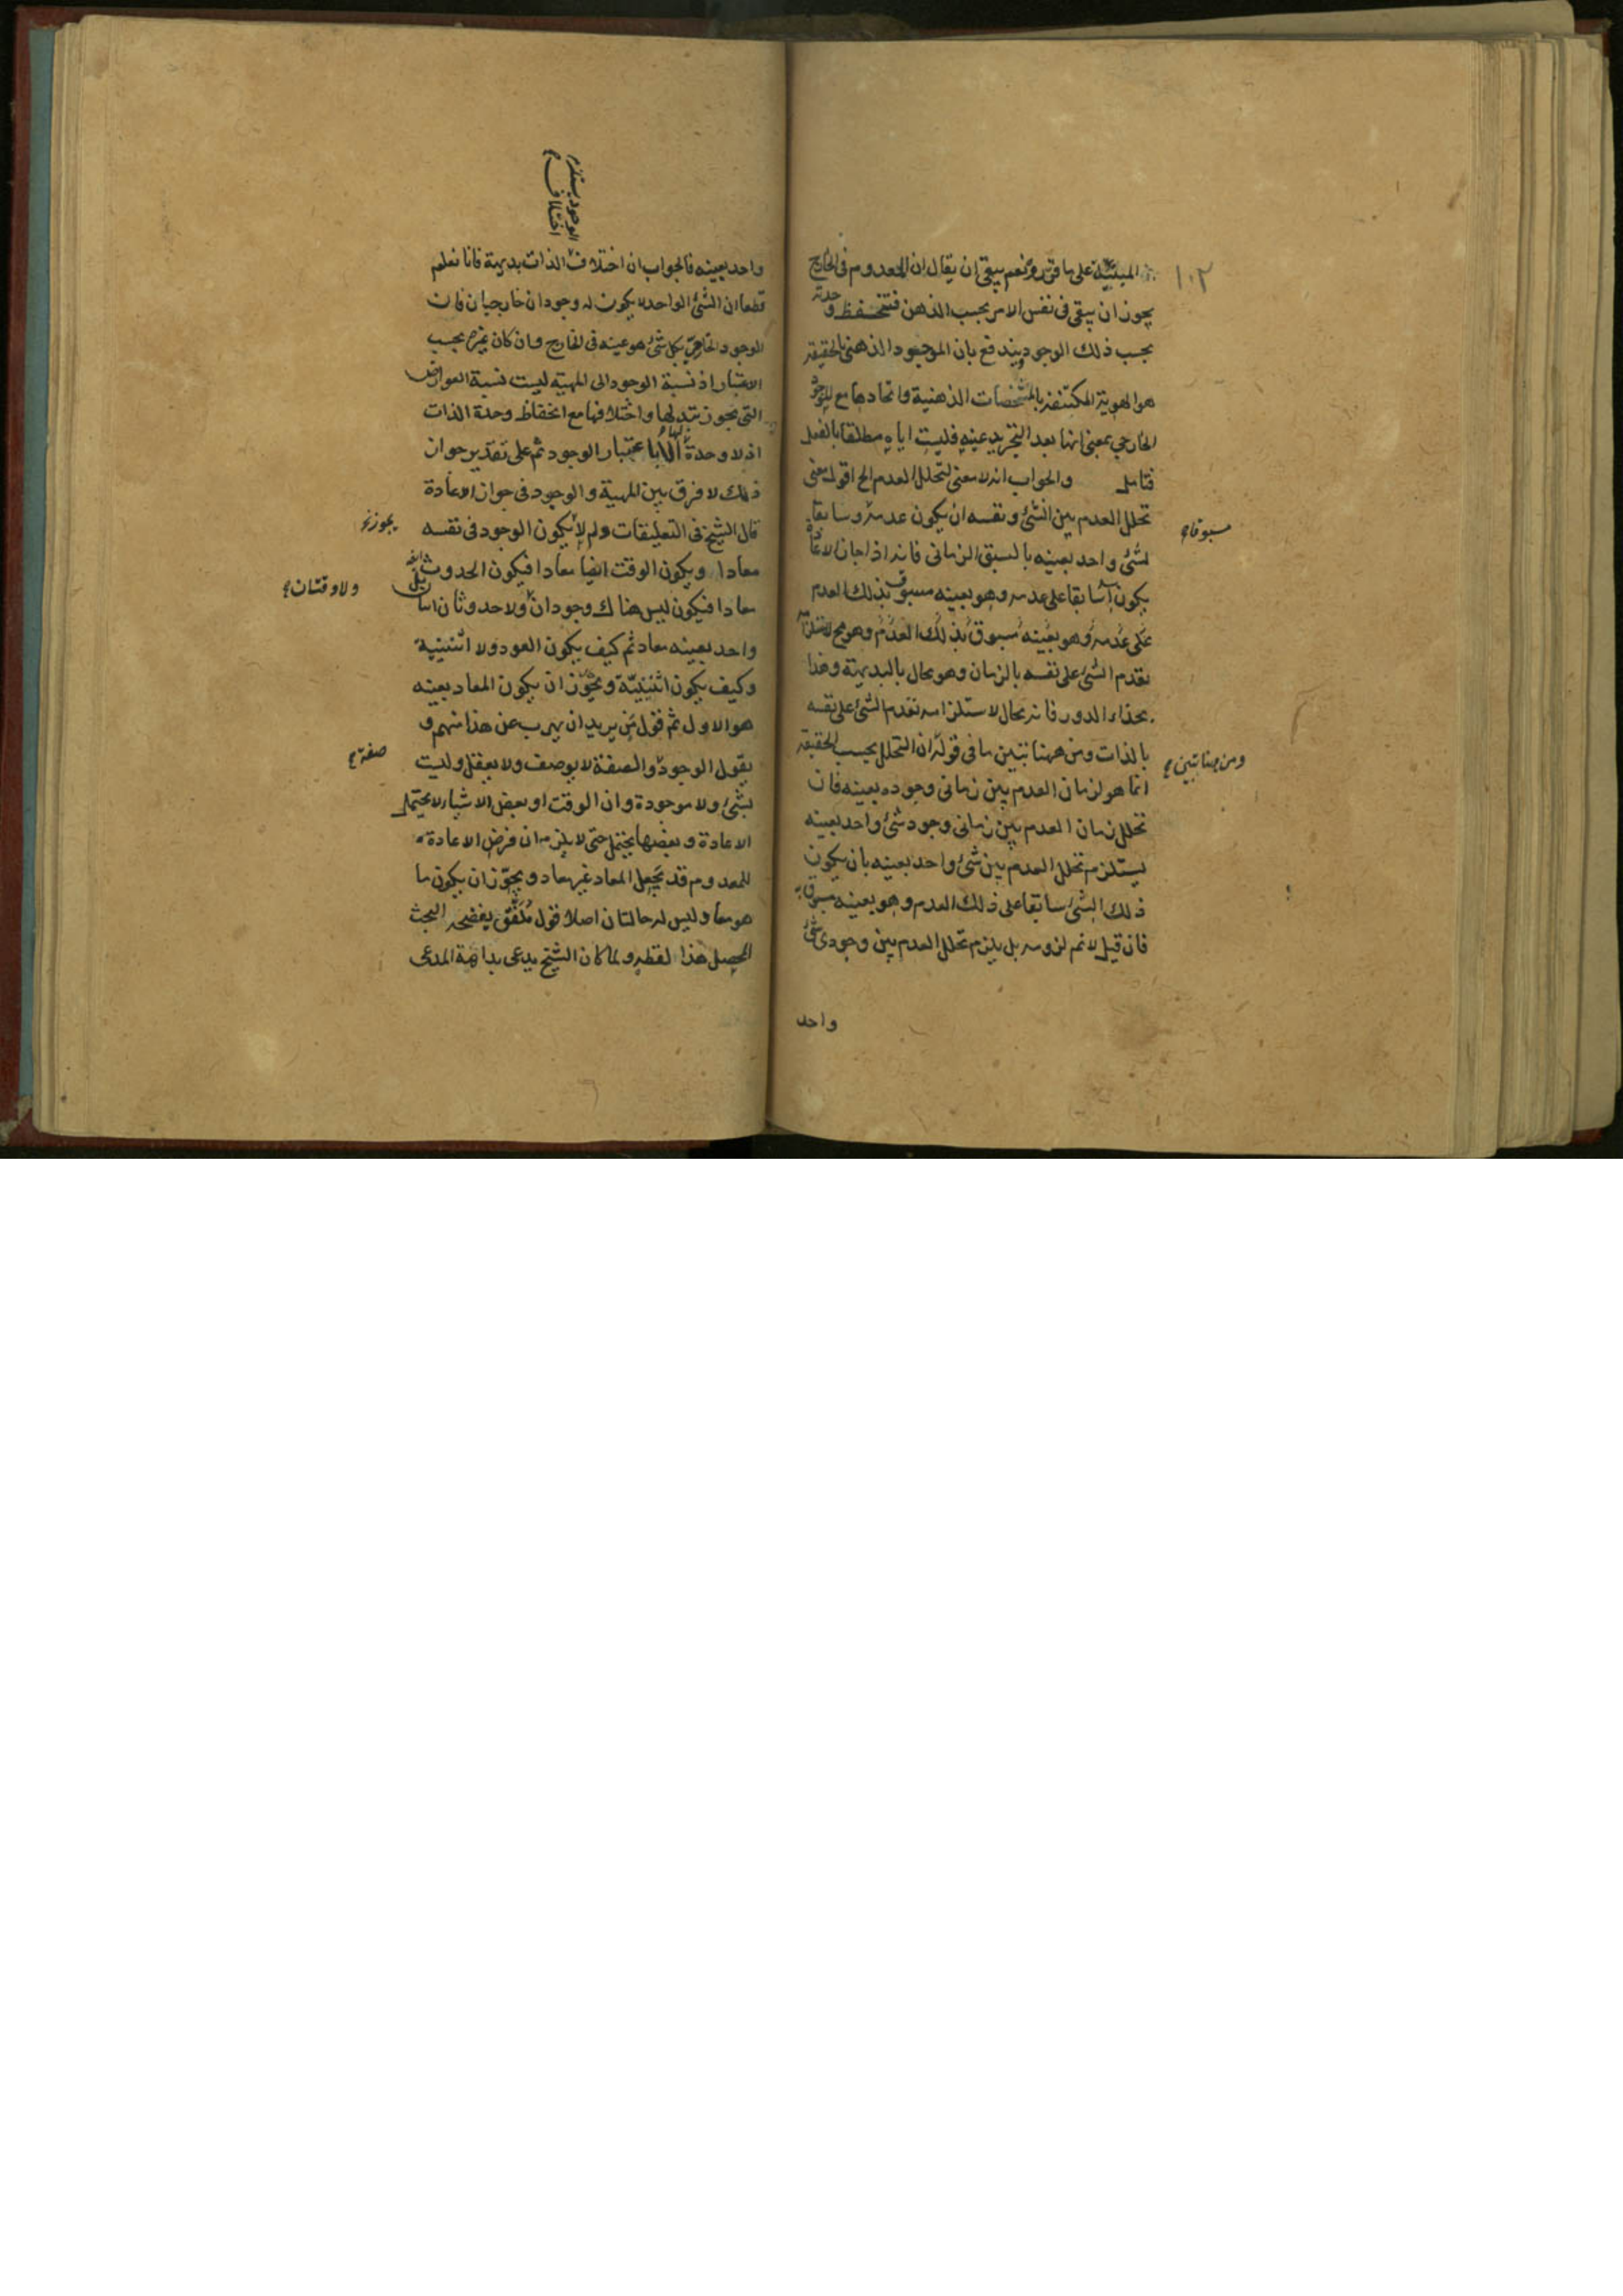 ١٠٢
المبنية على ما قرروه نعم يبقى ان يقال ان المعدوم فى الخارج
يجوز ان يبقى فى نفس الامر بحسب الذهن فتنحفظ وحدته
بحسب ذلك الوجود ويندفع بان الموجود الذهنى بالحقيقة
هو الهوية المكتنفة بالمشخصات الذهنية واتحادها مع الموجود
الخارجي بمعنى انها بعد التجريد عينه فليست اياه مطلقا بالفعل
فتامل والجواب انه لا معنى لتخلل العدم الخ اقول معنى
تخلل العدم بين الشئ ونفسه ان يكون عدمه وسابقا
مسبوقا
لشئ واحد بعينه بالسبق الزمانى فانه اذا جاز الاعادة
يكون سابقا على عدمه وهو بعينه مسبوق بذلك العدم
على عدمه وهو بعينه مسبوق بذلك العدم وهو مح لاستلزامه
تقدم الشئ على نفسه بالزمان وهو محال بالبديهة وهذا
بحذاء الدور فانه محال لاستلزامه تقدم الشئ على نفسه
بالذات ومن ههنا تبين ما فى قوله ان التخلل بحسب الحقيقة
ومن هنا تبين
انما هو لزمان العدم بين زمانى وجوده بعينه فان
تخلل زمان العدم بين زمانى وجود شئ واحد بعينه
يستلزم تخلل العدم بين شئ واحد بعينه بان يكون
ذلك الشئ سابقا على ذلك العدم وهو بعينه مسبوق به
فان قيل لا نم لزومه بل يلزم تخلل العدم بين وجودى شئ
واحد
الوجود يستلزم
اختلاف
واحد بعينه فالجواب ان اختلاف الذات بديهة فانا نعلم
قطعا ان الشئ الواحد لا يكون له وجودان خارجيان فان
الوجود الخارجي لكل شئ هو عينه فى الخارج وان كان غيره بحسب
الاعتبار اذ نسبة الوجود الى المهية ليست نسبة العوارض
التى يجوز تبدلها واختلافها مع انحفاظ وحدة الذات
اذ لا وحدة لها الا باعتبار الوجود ثم على تقدير جواز
ذلك لا فرق بين المهية والوجود فى جواز الاعادة
قال الشيخ فى التعليقات ولم لا يكون الوجود فى نفسه
يجوز
معادا ويكون الوقت ايضا معادا فيكون الحدوث ايضا
معادا فيكون ليس هناك وجودان ولا حدوثان اثنان بل
ولا وقتان
واحد بعينه معاد ثم كيف يكون العود ولا اثنينية
وكيف يكون اثنينية ويجوز ان يكون المعاد بعينه
هو الاول ثم قول من يريد ان يهرب عن هذا منهم و
يقول الوجود والصفة لا يوصف ولا يعقل وليست
صفة
بشئ ولا موجودة وان الوقت او بعض الاشياء لا يحتمل
الاعادة وبعضها يحتمل حتى لا يلزم ان فرض الاعادة
للمعدوم قد يجعل المعاد غير معاد ويجوز ان يكون ما
هو معاد وليس له حالتان اصلا قول ملفق يفضحه البحث
المحصل هذا لفظه ولما كان الشيخ يدعى بداهة المدعى